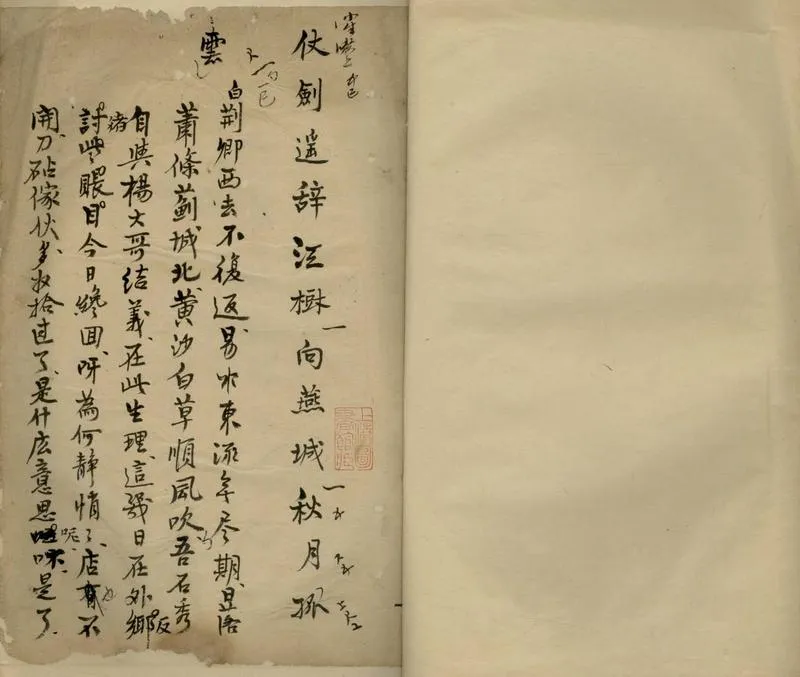 仗劍遥辞江樹向燕城秋月孤
雲
白荆卿西去不復返易水東流无尽期日落
蕭條薊城北黄沙白草順風吹吾石秀
自與楊大哥結義在此生理這幾日在外鄉販
猪討些賬目今日纔回呀為何静悄〻店也不
開刀砧傢伙多收拾过了是什庅意思呢哦是了